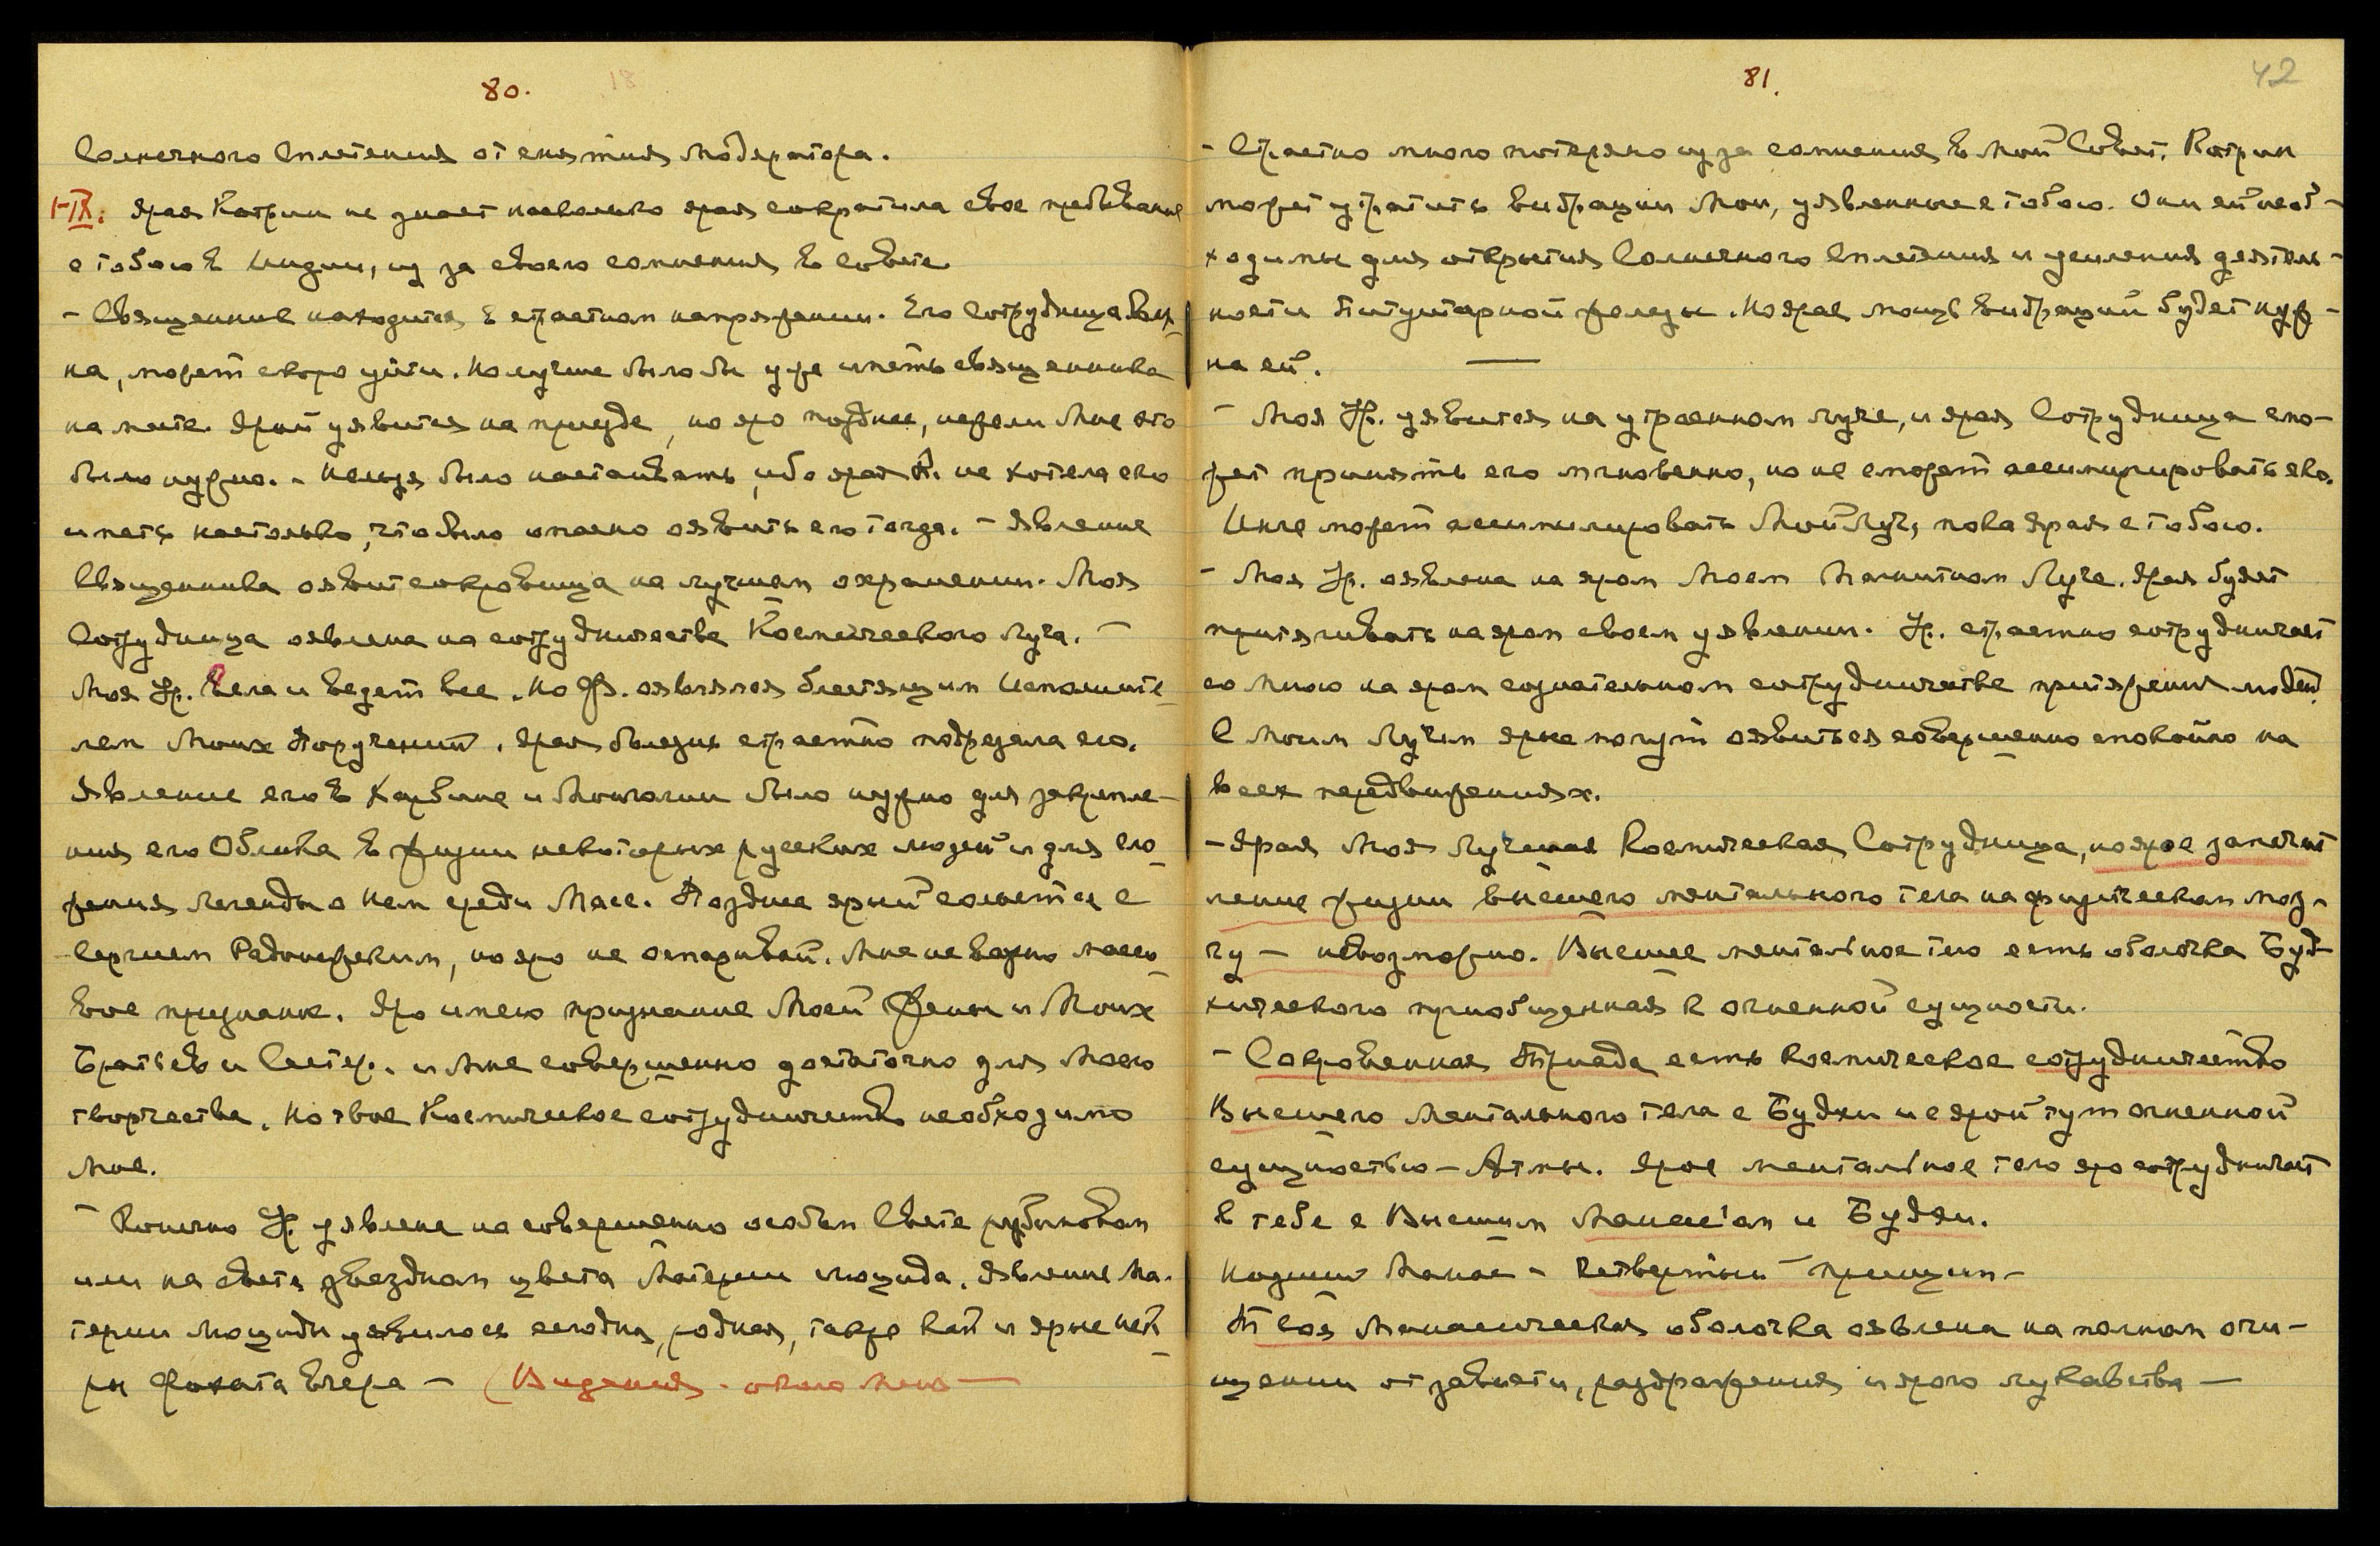 80.
Солнечного Сплетения от снятия Модератора.
1-IX. Ярая Катрин не знает насколько ярая сократила свое пребывание
с тобою в Индии, из за своего сомнения в совете.
- Священник находится в страстном напряжении. Его Сотрудница
на, может скоро уйти. Но лучше было бы уже иметь священника
на месте. Ярый уявится на приезде, но яро позднее, нежели Мне это
было нужно. - Нельзя было настаивать, ибо ярая К. не хотела его
иметь настолько, что было опасно оявить его тогда. - Явление
Священника оявит сокровища на лучшем охранении. Моя
Сотрудница оявлена на сотрудничестве Космического Луча. -
Моя Ур. Вела и ведет все. Но Ф. оявлялся блестящим Исполните-
лем Моих Поручений. Ярая болезнь страстно подрезала его.
Явление его в Харбине и Монголии было нужно для закрепле-
ния его Облика в жизни некоторых русских людей и для сло-
жения Легенды о Нем среди Масс. Позднее ярый сольется с
Сергием Радонежским, но яро не оспаривай. Мне не важно массо-
вое признание. Яро имею признание Моей Жены и Моих
Братьев и Сестер. и Мне совершенно достаточно для Моего
творчества. Но твое Космическое сотрудничество необходимо
Мне.
- Конечно Ур. уявлена на совершенно особом Свете рубиновом
или на свете звездном цвета Материи Люцида. Явление Ма-
терии Люциды уявилось сегодня, родная, также как и ярые
Фохата вчера - (Видения - около
81.
42
- Страстно много потеряно из за сомнения в Мой Совет. Катрин
может утратить вибрации Мои, уявленные с тобою. Они ей необ-
ходимы для открытия Солнечного Сплетения и усиления деятель-
ности Питуитарной железы. Но ярая мощь вибраций будет нуж-
на ей.
- Моя Ур. уявится на утроенном луче, и ярая Сотрудница смо-
жет принять его мгновенно, но не сможет ассимилировать его.
Инге может ассимилировать Мой Луч, пока ярая с тобою.
- Моя Ур. оявлена на яром Моем Магнитном Луче. Ярая будет
притягивать на яром своем уявлении. Ур. страстно сотрудничает
со Мною на яром сознательном сотрудничестве притяжения людей.
С Моим Лучом ярые могут оявиться совершенно спокойно на
всех передвижениях.
- Ярая Моя Лучшая Космическая Сотрудница, но ярое запечат-
ление жизни высшего ментального тела на физическом моз-
гу - невозможно. Высшее ментальное тело есть оболочка Буд-
хического приобщенная к огненной сущности.
- Сокровенная Триада есть космическое сотрудничество
Высшего Ментального тела с Будхи и с ярой тут огненной
сущностью - Атмы. Ярое ментальное тело яро сотрудничает
в тебе с Высшим Манас'ом и Будхи.
Низший Манас - четвертый принцип -
Твоя Манасическая оболочка оявлена на полном очи-
щении от зависти, раздражения и ярого лукавства -